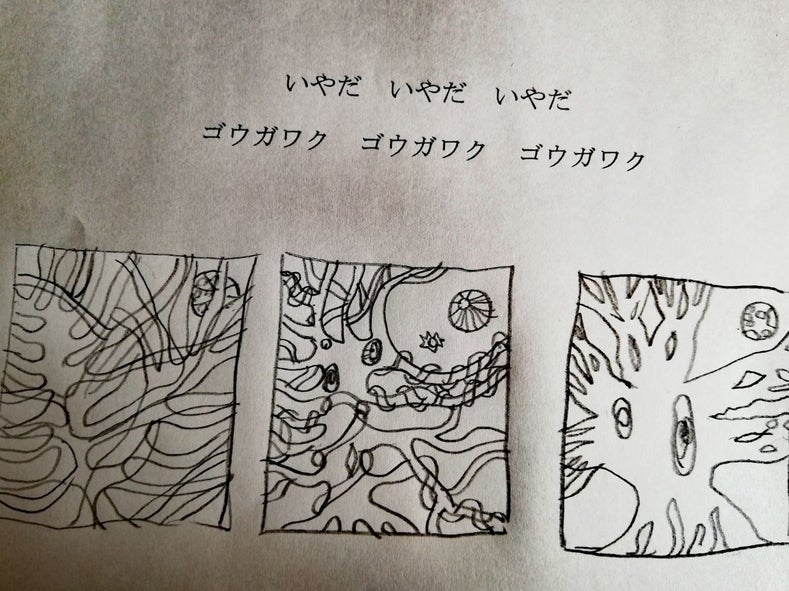 いやだ　いやだ　いやだ
ゴウガワク　ゴウガワク　ゴウガワク